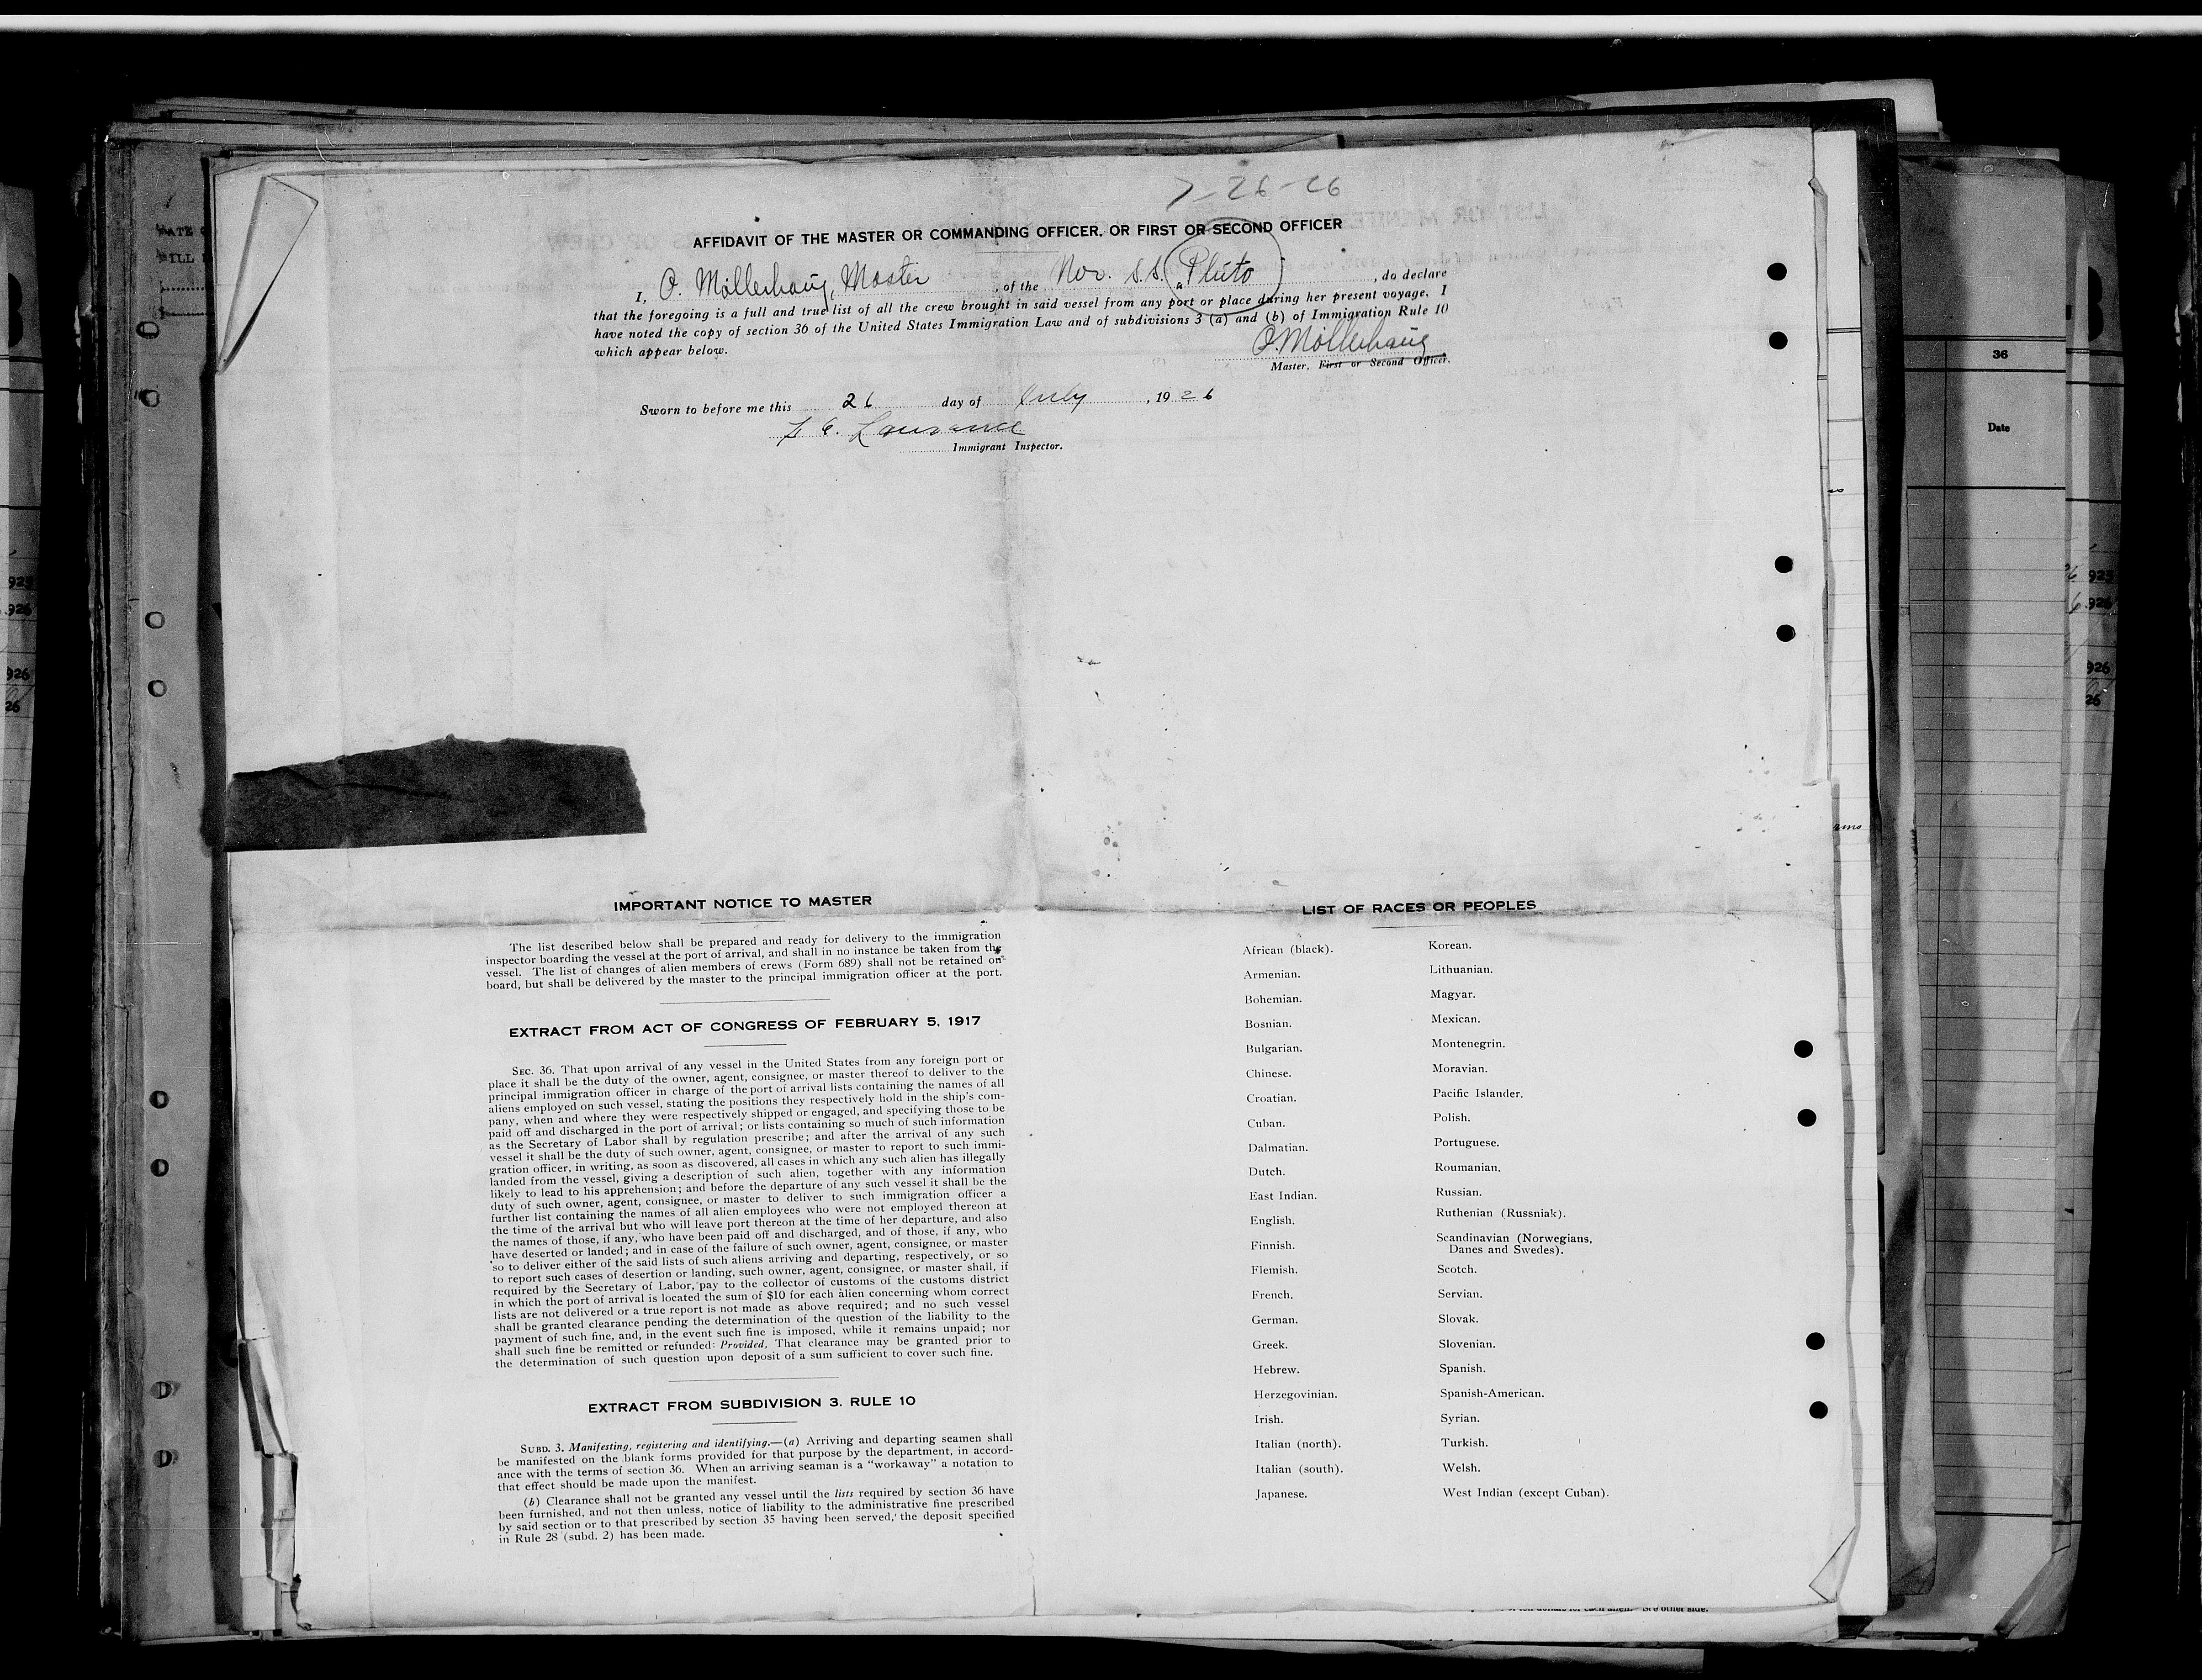 7-26-26
AFFIDAVIT OF THE MASTER OR COMMANDING OFFICER, OR FIRST OR SECOND OFFICER
I, O. Möllerhaug, Master, of the Nor. S.S. "Pluto", do declare
that the foregoing is a full and true list of all the crew brought in said vessel from any port or place during her present voyage. I
have noted the copy of section 36 of the United States Immigration Law and of subdivisions 3 (a) and (b) of Immigration Rule 10
which appear below.
O. Möllerhaug
Master, First or Second Officer.
Sworn to before me this 26 day of July, 1926
Immigrant Inspector.
IMPORTANT NOTICE TO MASTER
The list described below shall be prepared and ready for delivery to the immigration
inspector boarding the vessel at the port of arrival, and shall in no instance be taken from the
vessel. The list of changes of alien members of crews (Form 689) shall not be retained on
board, but shall be delivered by the master to the principal immigration officer at the port.
EXTRACT FROM ACT OF CONGRESS OF FEBRUARY 5, 1917
SEC. 36. That upon arrival of any vessel in the United States from any foreign port or
place it shall be the duty of the owner, agent, consignee, or master thereof to deliver to the
principal immigration officer in charge of the port of arrival lists containing the names of all
aliens employed on such vessel, stating the positions they respectively hold in the ship's com-
pany, when and where they were respectively shipped or engaged, and specifying those to be
paid off and discharged in the port of arrival; or lists containing so much of such information
as the Secretary of Labor shall by regulation prescribe; and after the arrival of any such
vessel it shall be the duty of such owner, agent, consignee, or master to report to such immi-
gration officer, in writing, as soon as discovered, all cases in which any such alien has illegally
landed from the vessel, giving a description of such alien, together with any information
likely to lead to his apprehension; and before the departure of any such vessel it shall be the
duty of such owner, agent, consignee, or master to deliver to such immigration officer a
further list containing the names of all alien employees who were not employed thereon at
the time of the arrival but who will leave port thereon at the time of her departure, and also
the names of those, if any, who have been paid off and discharged, and of those, if any, who
have deserted or landed; and in case of the failure of such owner, agent, consignee, or master
so to deliver either of the said lists of such aliens arriving and departing, respectively, or so
to report such cases of desertion or landing, such owner, agent, consignee, or master shall, if
required by the Secretary of Labor, pay to the collector of customs of the customs district
in which the port of arrival is located the sum of $10 for each alien concerning whom correct
lists are not delivered or a true report is not made as above required; and no such vessel
shall be granted clearance pending the determination of the question of the liability to the
payment of such fine, and, in the event such fine is imposed, while it remains unpaid; nor
shall such fine be remitted or refunded: Provided, That clearance may be granted prior to
the determination of such question upon deposit of a sum sufficient to cover such fine.
EXTRACT FROM SUBDIVISION 3. RULE 10
SUBD. 3. Manifesting, registering and identifying.—(a) Arriving and departing seamen shall
be manifested on the blank forms provided for that purpose by the department, in accord-
ance with the terms of section 36. When an arriving seaman is a "workaway" a notation to
that effect should be made upon the manifest.
(b) Clearance shall not be granted any vessel until the lists required by section 36 have
been furnished, and not then unless, notice of liability to the administrative fine prescribed
by said section or to that prescribed by section 35 having been served, the deposit specified
in Rule 28 (subd. 2) has been made.
LIST OF RACES OR PEOPLES
African (black).
Armenian.
Bohemian.
Bosnian.
Bulgarian.
Chinese.
Croatian.
Cuban.
Dalmatian.
Dutch.
East Indian.
English.
Finnish.
Flemish.
French.
German.
Greek.
Hebrew.
Herzegovinian.
Irish.
Italian (north).
Italian (south).
Japanese.
Korean.
Lithuanian.
Magyar.
Mexican.
Montenegrin.
Moravian.
Pacific Islander.
Polish.
Portuguese.
Roumanian.
Russian.
Ruthenian (Russniak).
Scandinavian (Norwegians,
Danes and Swedes).
Scotch.
Servian.
Slovak.
Slovenian.
Spanish.
Spanish-American.
Syrian.
Turkish.
Welsh.
West Indian (except Cuban).
36
Date